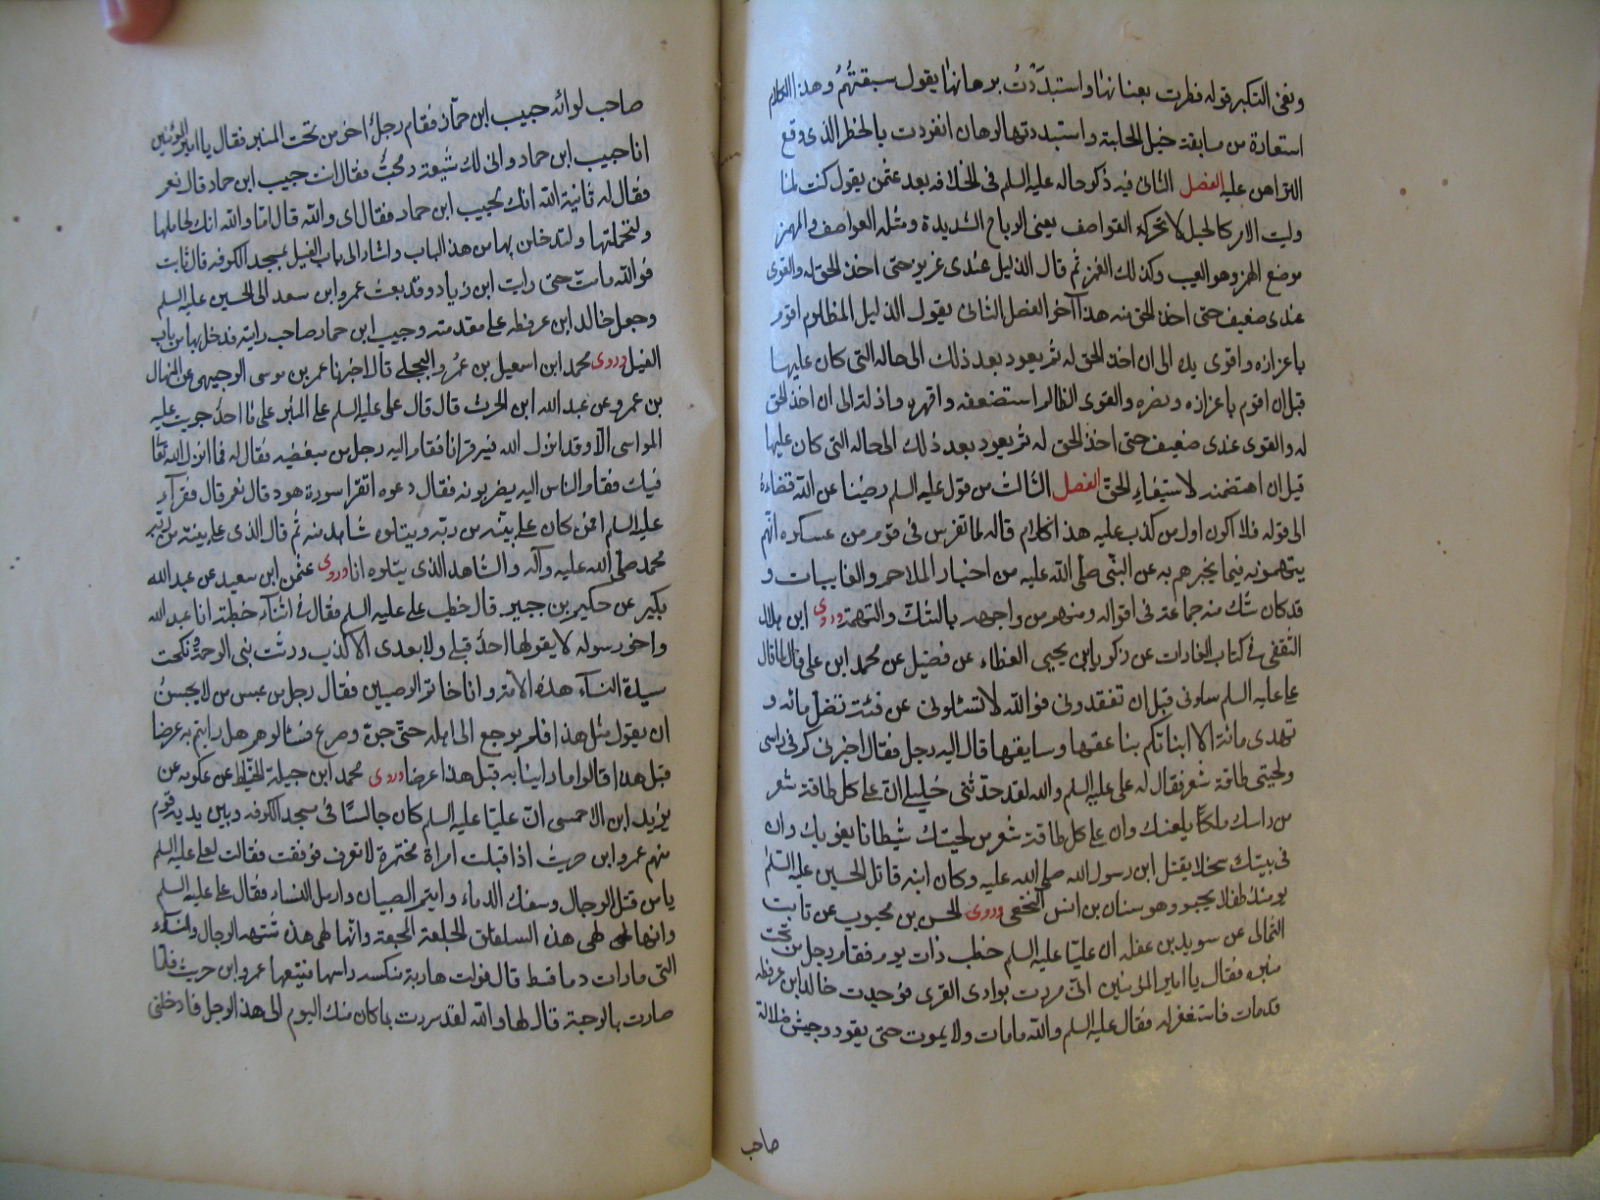 ونفى التكبر قوله فطرت بعنانها واستبددت برهانها يقول سبقتهم وهذا الكلام
استعارة من مسابقة خيل الحلبة واستبددتها لرهان انفردت بالخطر الذى وقع
التراهن عليه الفصل الثانى فيه ذكر حاله عليه السلم فى الخلافه بعد عثمن يقول كنت لما
وليت الامر كالجبل لا تحركه القواصف يعنى الرياح الشديدة ومثله العواصف والمهمز
موضع الهمز وهو العيب وكذلك الغمز ثم قال الذليل عندى عزيز حتى اخذ الحق له والقوى
عندى ضعيف حتى اخذ الحق منه هذا آخر الفصل الثانى يقول الذليل المظلوم اقوم
باعزازه واقوى يده الى ان اخذ الحق له ثم يعود بعد ذلك الى حاله التى كان عليها
قبل ان اقوم باعزازه ونصره والقوى الظالم استضعفه واقهره واذله الى ان اخذ الحق
له والقوى عندى ضعيف حتى اخذ الحق له ثم يعود بعد ذلك الى حاله التى كان عليها
قبل ان اهتضمه لاستيفاء الحق الفصل الثالث من قول عليه السلم رضينا عن الله قضاءه
الى قوله فلا اكون اول من كذب عليه هذا الكلام قاله لما تفرس فى قوم من عسكره انهم
يتهمونه فيما يخبرهم به عن النبى صلى الله عليه من اخبار الملاحم والغايبات و
قد كان شك منه جماعة فى اقواله ومنهم من واجهه بالشك والتهمة وروى ابن هلال
الثقفى فى كتاب الغارات عن زكريا بن يحيى العطاء عن فضيل عن محمد ابن على قال لما قال
على عليه السلم سلونى قبل ان تفقدونى فوالله لا تسئلونى عن فئت تضل مائه و
تهدى مائة الا انباتكم بناعقها وسايقها قال اليه رجل فقال اخبرنى كم فى راسى
ولحيتى طاقة شعر فقال له على عليه السلم والله لقد حدثنى خليلى ان على كل طاقة شعر
من راسك ملكا يلعنك وان على كل طاقة شعر من لحيتك شيطانا يغويك وان
فى بيتك سخلا يقتل ابن رسول الله صلى الله عليه وكان ابنه قاتل الحسين عليه السلم
يومئذ طفلا يحبو وهو سنان بن انس النخعى وروى الحسن بن محبوب عن ثابت
الثمالى عن سويد بن غفله ان عليا عليه السلم خطب ذات يوم فقام رجل من تحت
منبره فقال يا امير المؤمنين انى مررت بوادى القرى فوجدت خالد ابن عرفطه
قد مات فاستغفر له فقال عليه السلم والله ما مات ولا يموت حتى يقود جيش ضلالة
صاحب
صاحب لوائه حبيب ابن حماد فقام رجل اخر من تحت المنبر فقال يا امير المؤمنين
انا حبيب ابن حماد وانى لك شيعة ومحب فقال انت حبيب ابن حماد قال نعم
فقال له ثانية الله انك لحبيب ابن حماد فقال اى والله قال اما والله انك لحاملها
ولتحملنها ولتدخلن بها من هذا الباب واشار الى باب الفيل بمسجد الكوفه قال ثابت
فوالله ما مت حتى رايت ابن زياد وقد بعث عمرو ابن سعد الى الحسين عليه السلم
وجعل خالد ابن عرفطه على مقدمته وحبيب ابن حماد صاحب رايته فدخل بها من باب
الفيل وروى محمد ابن اسمعيل بن عمرو البجلى قال اخبرنا عمر بن موسى الوجيهى عن المنهال
بن عمرو عن عبد الله ابن الحرث قال قال على عليه السلم على المنبر على ما احد جريت عليه
المواسى الا وقد انزل الله فيه قرانا فقام اليه رجل من مبغضيه فقال له فما انزل الله تعا
فيك فقام الناس اليه يضربونه فقال دعوه اتقرا سورة هود قال نعم قال فقرآء
عليه السلم افمن كان على بينه من ربه ويتلوه شاهد منه ثم قال الذى على بينه من ربه
محمد صلى الله عليه وآله والشاهد الذى يتلوه انا وروى عثمن ابن سعيد عن عبد الله
بكير عن حكيم بن جبير قال خطب على عليه السلم فقال فى اثنآء خطبته انا عبد الله
واخو رسوله لا يقولها احد قبلى ولا بعدى الا كذب ورثت نبى الرحمة ونكحت
سيدة النسآء هذه الامة وانا خاتم الوصيين فقال رجل من عبس من لا يحسن
ان يقول مثل هذا فلم يرجع الى اهله حتى جن وصرع فسالوهم هل رايتم به عرضا
قبل هذا قالوا ما راينا به قبل هذا عرضا وروى محمد ابن جبلة الخياط عن عكرمه عن
يزيد ابن الاحمسى ان عليا عليه السلم كان جالسا فى مسجد الكوفه وبين يديه قوم
منهم عمرو ابن حريث اذا قبلت امراة مختمرة لا تعرف فوقفت فقالت لعلى عليه السلم
يا من قتل الرجال وسفك الدماء وايتم الصبيان وارمل النساء فقال على عليه السلم
وانها لهى هذه السلقلق الجلعة المجعة وانها لهى هذه شبهه الرجال والنساء
التى ما رات دما قط قال فولت هاربة منكسه راسها فتبعها عمرو ابن حريث فلما
صارت بالرحبة قال لها والله لقد سررت بما كان منك اليوم الى هذا الرجل فادخلى